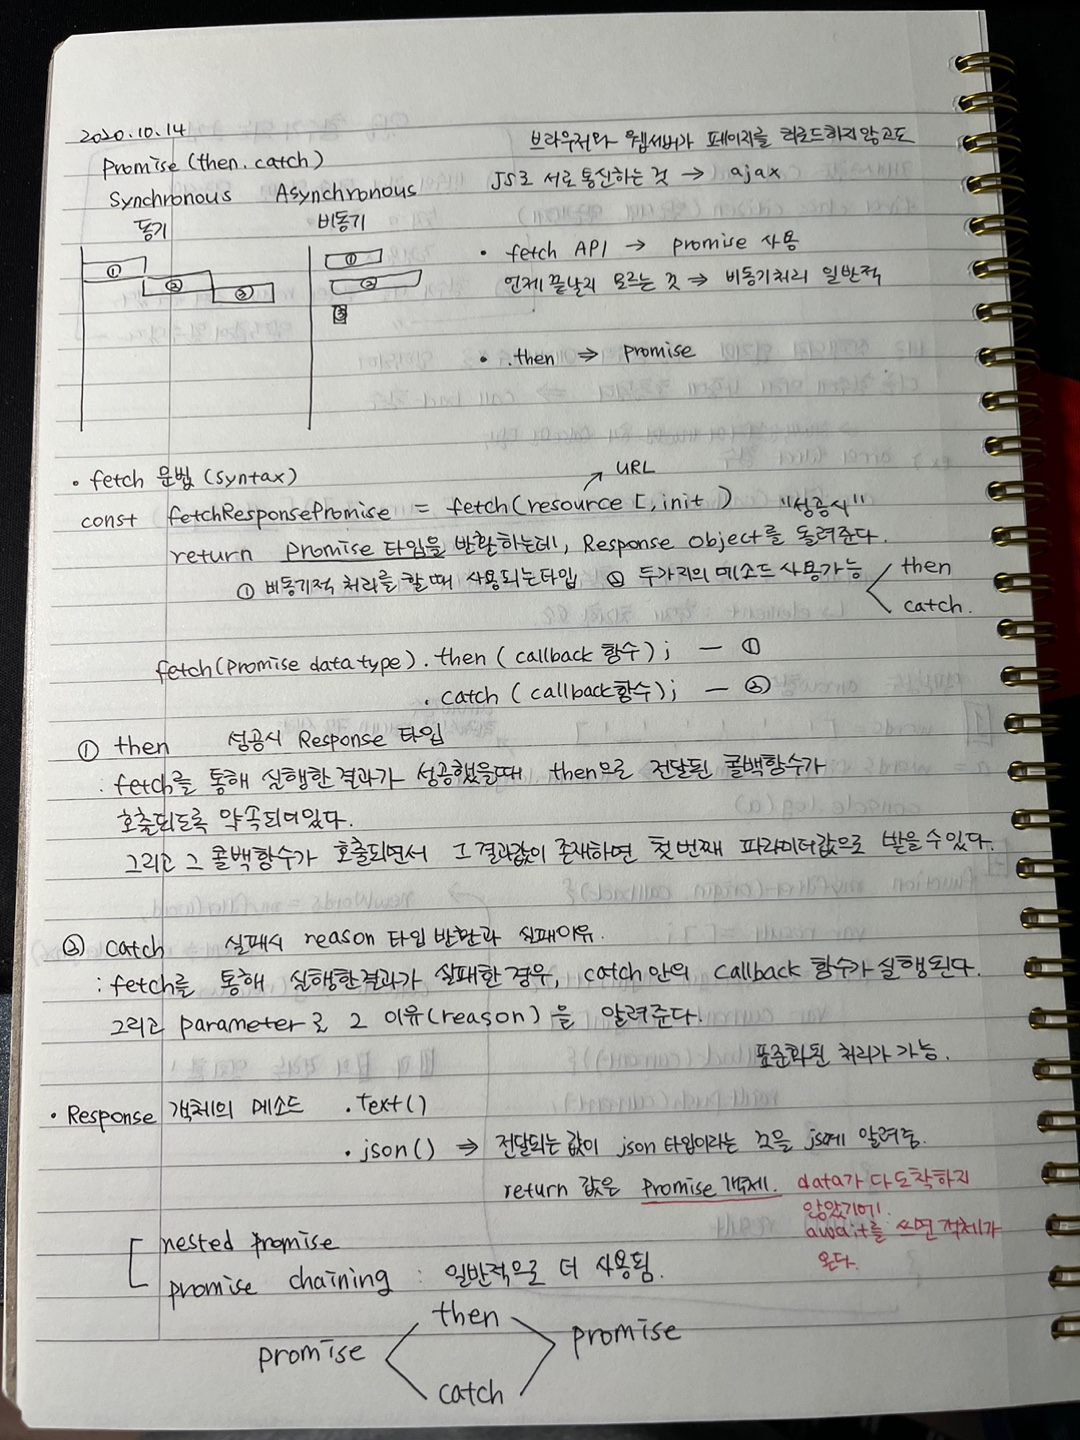 2020.10.14
Promise (then. catch)
Synchronous Asynchronous
동기 비동기
① ①
② ②
③ ③
브라우저와 웹서버가 페이지를 리로드하지 않고도
JS로 서로 통신하는 것 → ajax
• fetch API → promise 사용
언제 끝날지 모르는 것 ⇒ 비동기처리 일반적
• .then ⇒ promise
• fetch 문법 (syntax)
↗ URL
const fetchResponsePromise = fetch(resource [, init ) "성공시"
return promise 타입을 반환하는데, Response object를 돌려준다.
① 비동기적 처리를 할 때 사용되는 타입 ② 두가지의 메소드 사용가능 then
catch.
fetch(promise data type) . then ( callback 함수) ; — ①
. catch ( callback함수) ; — ②
① then 성공시 Response 타입
: fetch를 통해 실행한 결과가 성공했을때 then으로 전달된 콜백함수가
호출되도록 약속되어있다.
그리고 그 콜백함수가 호출되면서 그 결과값이 존재하면 첫 번째 파라미터값으로 받을 수 있다.
② catch 실패시 reason 타입 반환과 실패이유.
: fetch를 통해 실행한결과가 실패한 경우, catch 안의 callback 함수가 실행된다.
그리고 parameter로 그 이유(reason)을 알려준다.
표준화된 처리가 가능.
• Response 객체의 메소드 .Text()
.json() ⇒ 전달되는 값이 json 타입이라는 것을 js에 알려줌.
return 값은 promise 객체. data가 다 도착하지
않았기에!
await를 쓰면 객체가
온다.
nested promise
promise chaining : 일반적으로 더 사용됨.
then
promise promise
catch